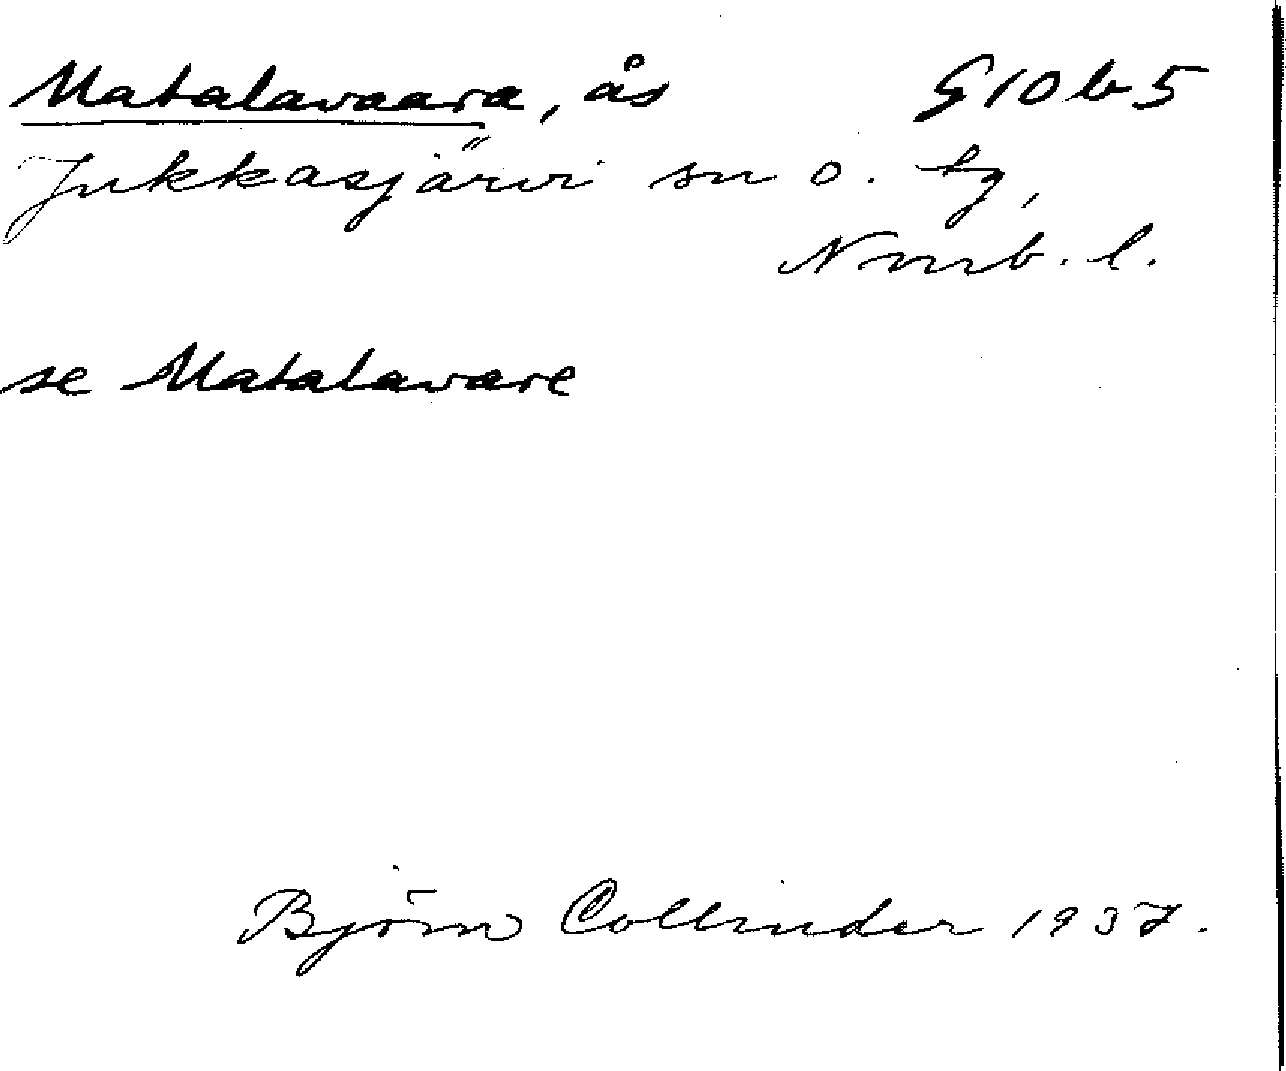 Matalavaara, ås G10b5
Jukkasjärvi sn o. tg,
Norrb. l.
se Matalavare
Björn Collinder 1937.